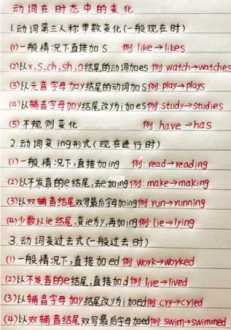 动词在时态中的变化
1.动词第三人称单数变化(一般现在时)
(1)一般情况下直接加s 例 like→likes
(2)以x,s,ch,sh,o结尾的动词加es 例 watch→watches
(3)以元音字母加y结尾的动词加s 例 play→plays
(4)以辅音字母加y结尾改为i加es 例 study→studies
(5)不规则变化 例 have→has
2.动词变ing形式(现在进行时)
(1)一般情况下,直接加ing 例: read→reading
(2)以不发音的e结尾,去e加ing 例: make→making
(3)以双辅音结尾双写最后字母加ing 例 run→running
(4)少数以ie结尾,变ie为y,再加ing 例: lie→lying
3.动词变过去式(一般过去时)
(1)一般情况下,直接加ed 例 work→worked
(2)以不发音的e结尾,直接加d 例 live→lived
(3)以辅音字母加y结尾改为i加ed 例 cry→cryed
(4)以双辅音结尾双写最后字母加ed 例 swim→swimmed